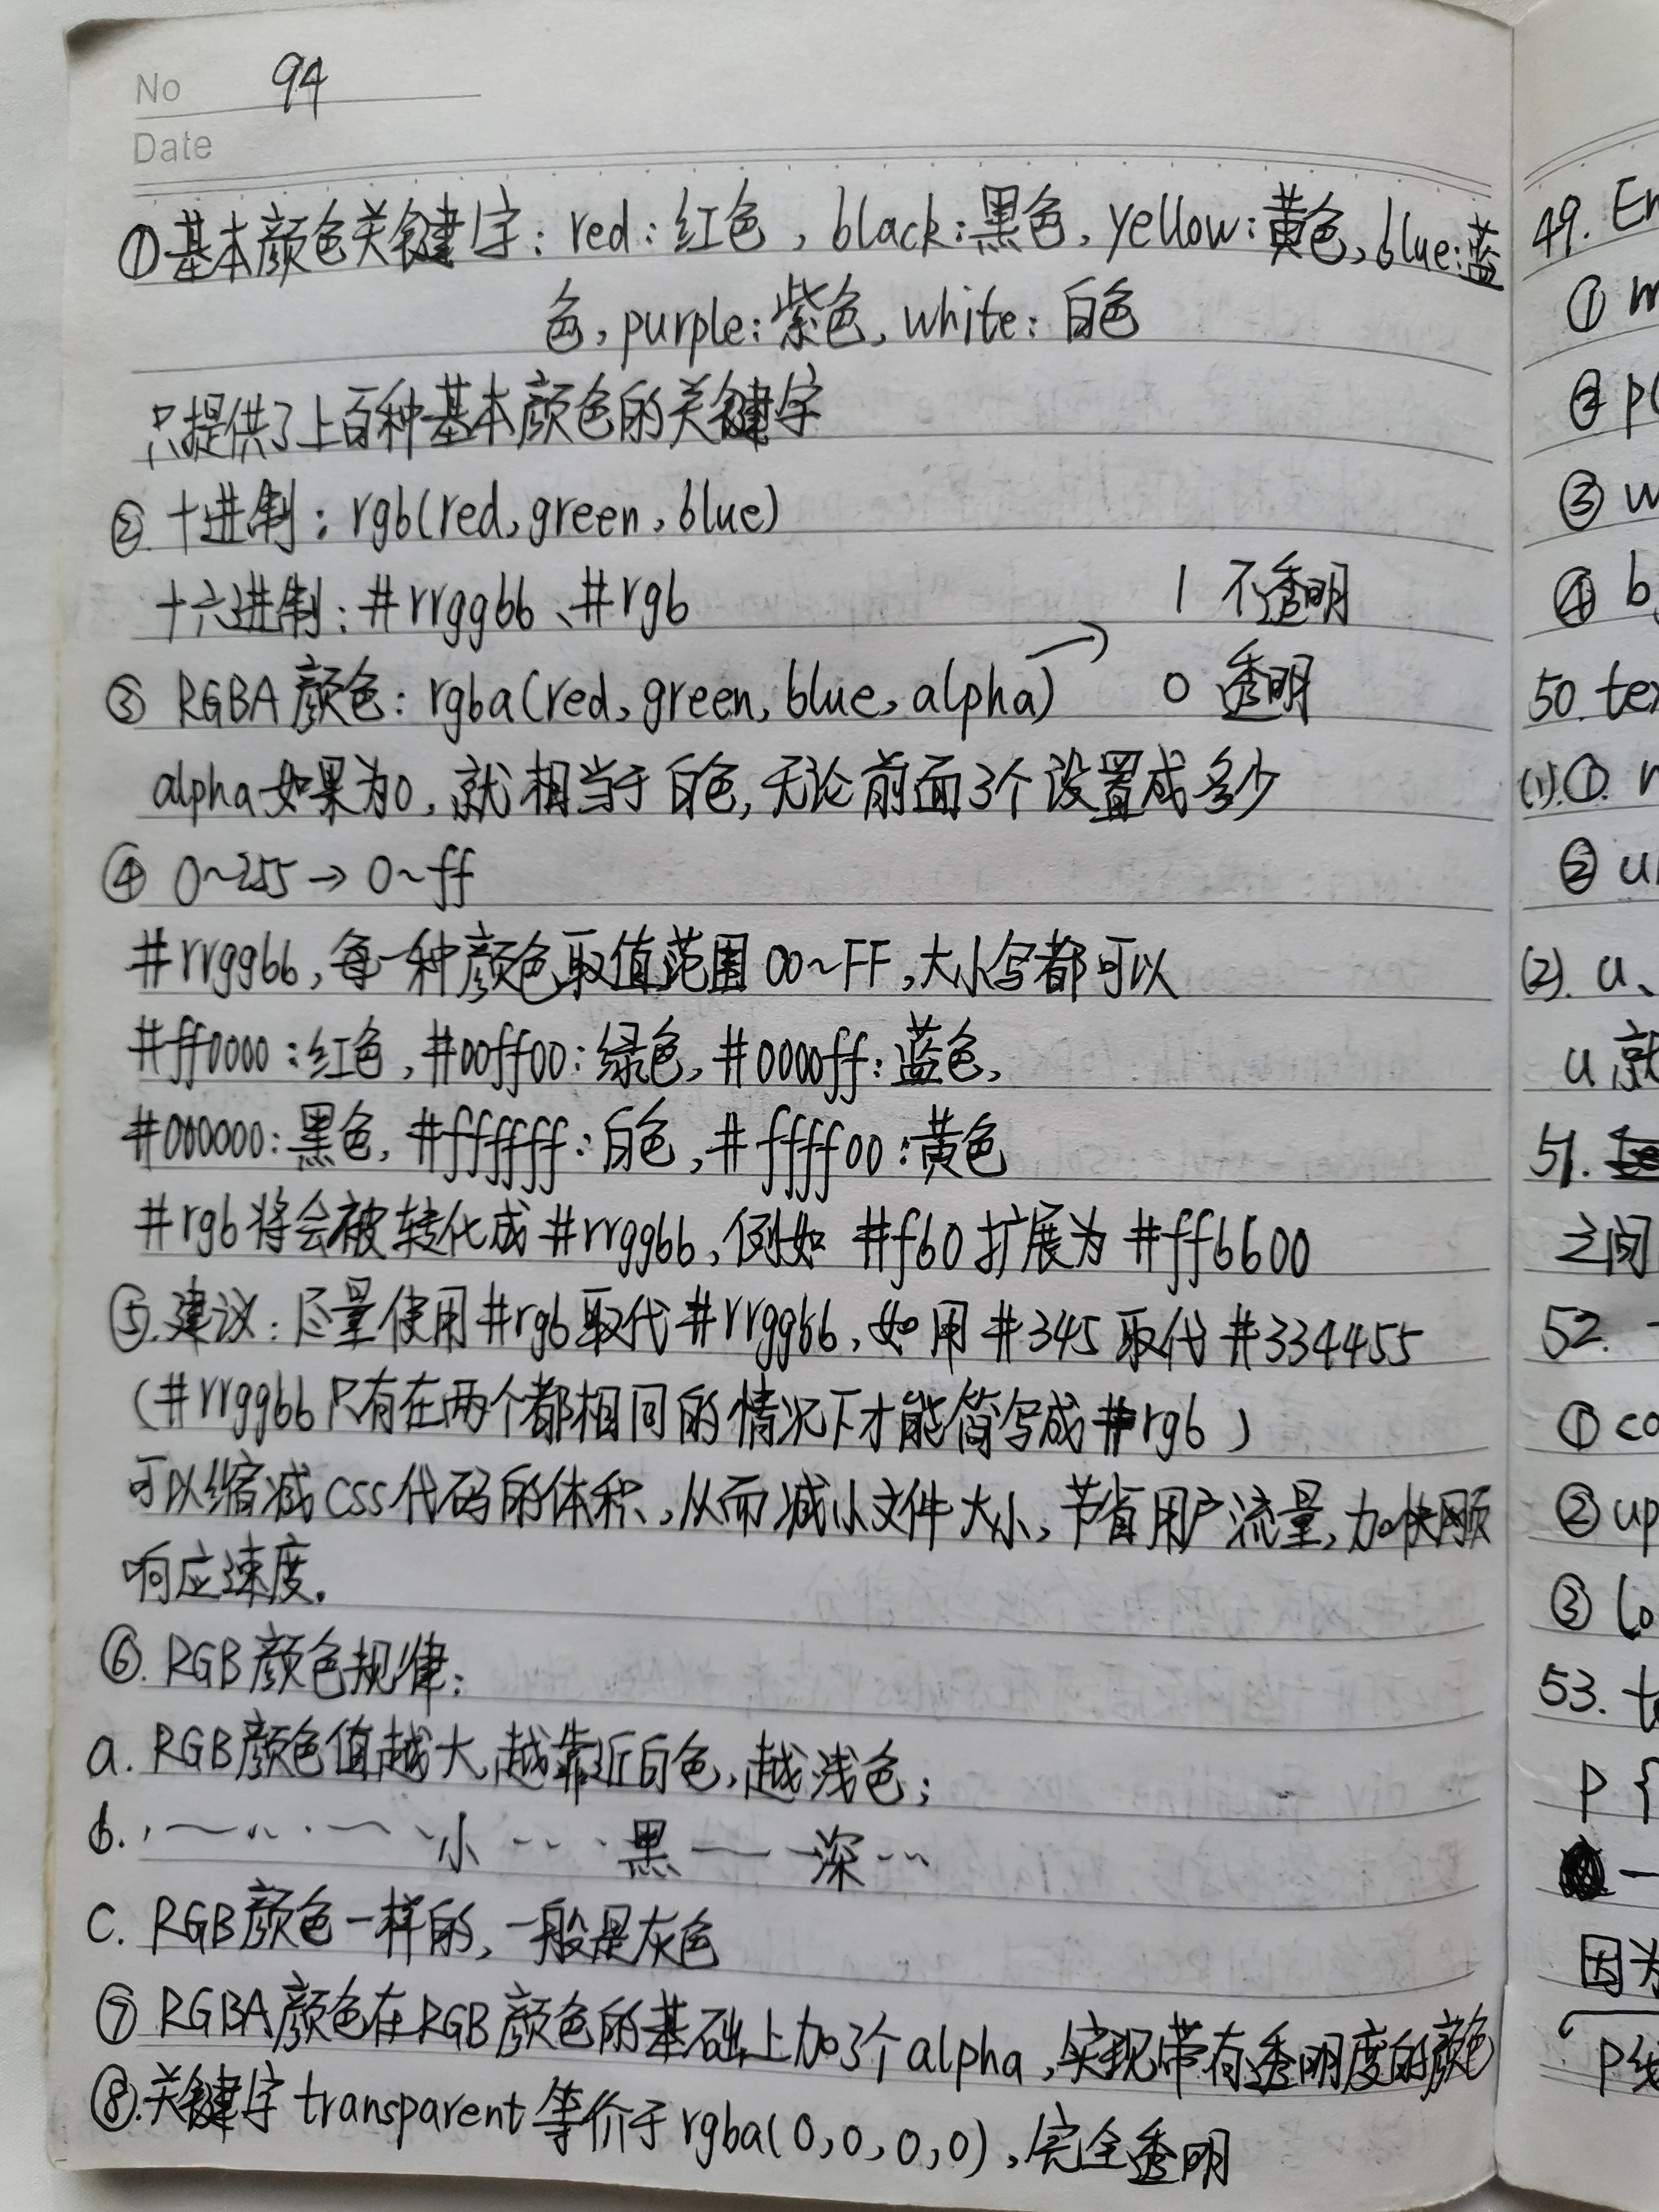 No 94
Date
①基本颜色关键字: red: 红色, black: 黑色, yellow: 黄色, blue: 蓝
色, purple: 紫色, white: 白色
只提供了上百种基本颜色的关键字
②. 十进制: rgb(red, green, blue)
十六进制: #rrggbb、#rgb
1 不透明
③ RGBA 颜色: rgba(red, green, blue, alpha)
0 透明
alpha如果为0, 就相当于白色, 无论前面3个设置成多少
④ 0~255 → 0~ff
#rrggbb, 每一种颜色取值范围 00~FF, 大小写都可以
#ff0000: 红色, #00ff00: 绿色, #0000ff: 蓝色,
#000000: 黑色, #ffffff: 白色, #ffff00: 黄色
#rgb 将会被转化成 #rrggbb, 例如 #f60 扩展为 #ff6600
⑤. 建议: 尽量使用 #rgb 取代 #rrggbb, 如用 #345 取代 #334455
(#rrggbb 只有在两个都相同的情况下才能简写成 #rgb)
可以缩减CSS代码的体积, 从而减小文件大小, 节省用户流量, 加快网页
响应速度.
⑥. RGB 颜色规律:
a. RGB颜色值越大, 越靠近白色, 越浅色;
b. 小 黑 深
c. RGB颜色一样的, 一般是灰色
⑦ RGBA颜色在RGB颜色的基础上加了个alpha, 实现带有透明度的颜色
⑧. 关键字 transparent 等价于 rgba(0,0,0,0), 完全透明
49. En
①
②
③ w
④ b
50. tex
(1). ①.
② u
(2). u、
u 就
51.
之间
52.
① co
② up
③ lo
53. t
P {
一
因为
P线